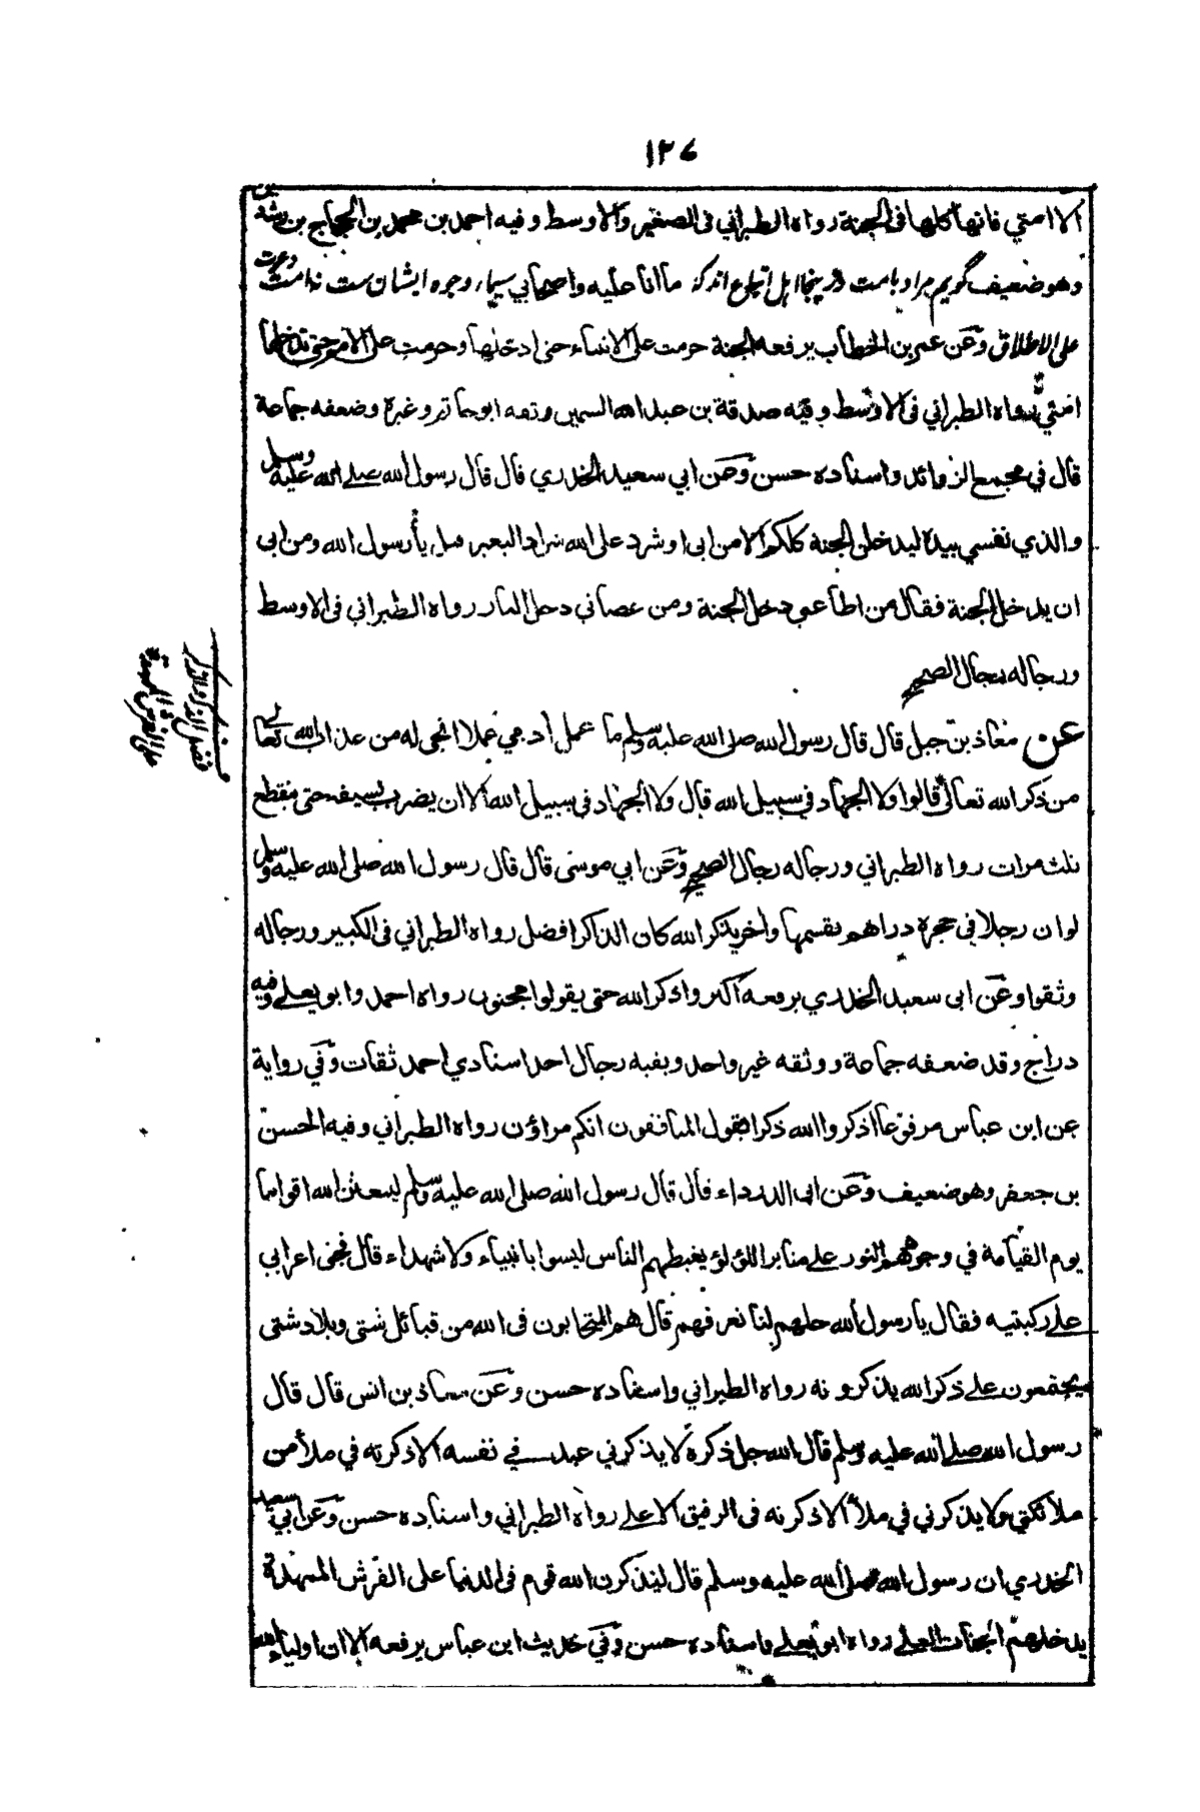 ١٢٧
الا امتي فانها كلها فى الجنة رواه الطبراني فى الصغير والاوسط وفيه احمد بن محمد بن الحجاج بن رشدين
وهو ضعيف گويم مراد بامت درينجا اهل اتباع اند كه ما انا عليه واصحابي سيما وجوه ايشان ست نه امت دعوت
على الاطلاق وعن عمر بن الخطاب يرفعه الجنة حرمت على الانبياء حتى ادخلها وحرمت على الامم حتى تدخلها
امتي رواه الطبراني فى الاوسط وفيه صدقة بن عبد الله السمين وثقه ابو حاتم وغيره وضعفه جماعة
قال في مجمع الزوائد واسناده حسن وعن ابي سعيد الخدري قال قال رسول الله صلے الله عليه وسلم
والذي نفسي بيده ليدخلن الجنة كلكم الا من ابى او شرد على الله شراد البعير قيل يا رسول الله ومن ابى
ان يدخل الجنة فقال من اطاعني دخل الجنة ومن عصاني دخل النار رواه الطبراني فى الاوسط
ورجاله رجال الصحيح
عن معاذ بن جبل قال قال رسول الله صلى الله عليه وسلم ما عمل ادمي عملا انجى له من عذاب الله تعالى
من ذكر الله تعالى قالوا ولا الجهاد في سبيل الله قال ولا الجهاد في سبيل الله الا ان يضرب بسيفه حتى ينقطع
ثلث مرات رواه الطبراني ورجاله رجال الصحيح وعن ابي موسى قال قال رسول الله صلى الله عليه وسلم
لو ان رجلا في حجره دراهم يقسمها واخر يذكر الله كان الذاكر افضل رواه الطبراني فى الكبير ورجاله
وثقوا وعن ابى سعيد الخدري يرفعه اكثروا ذكر الله حتى يقولوا مجنون رواه احمد وابو يعلے وفيه
دراج وقد ضعفه جماعة ووثقه غير واحد وبقية رجال احد اسنادي احمد ثقات وفي رواية
عن ابن عباس مرفوعا اذكروا الله ذكرا يقول المنافقون انكم مراؤن رواه الطبراني وفيه الحسن
بن جعفر وهو ضعيف وعن ابى الدرداء قال قال رسول الله صلى الله عليه وسلم ليبعثن الله اقواما
يوم القيامة في وجوههم النور علے منابر اللؤلؤ يغبطهم الناس ليسوا بانبياء ولا شهداء قال فجثى اعرابي
علے ركبتيه فقال يا رسول الله حلهم لنا نعرفهم قال هم المتحابون فى الله من قبائل شتى وبلاد شتى
يجتمعون علے ذكر الله يذكرونه رواه الطبراني واسناده حسن وعن معاذ بن انس قال قال
رسول الله صلے الله عليه وسلم قال الله جل ذكره لا يذكرني عبد في نفسه الا ذكرته في ملأ من
ملائكتي ولا يذكرني في ملأ الا ذكرته فى الرفيق الاعلے رواه الطبراني واسناده حسن وعن ابي سعيد
الخدري ان رسول الله صلى الله عليه وسلم قال ليذكرن الله قوم فى الدنيا على الفرش الممهدة
يدخلهم الجنات العلے رواه ابو يعلے واسناده حسن وفي حديث ابن عباس يرفعه الا ان اولياء الله